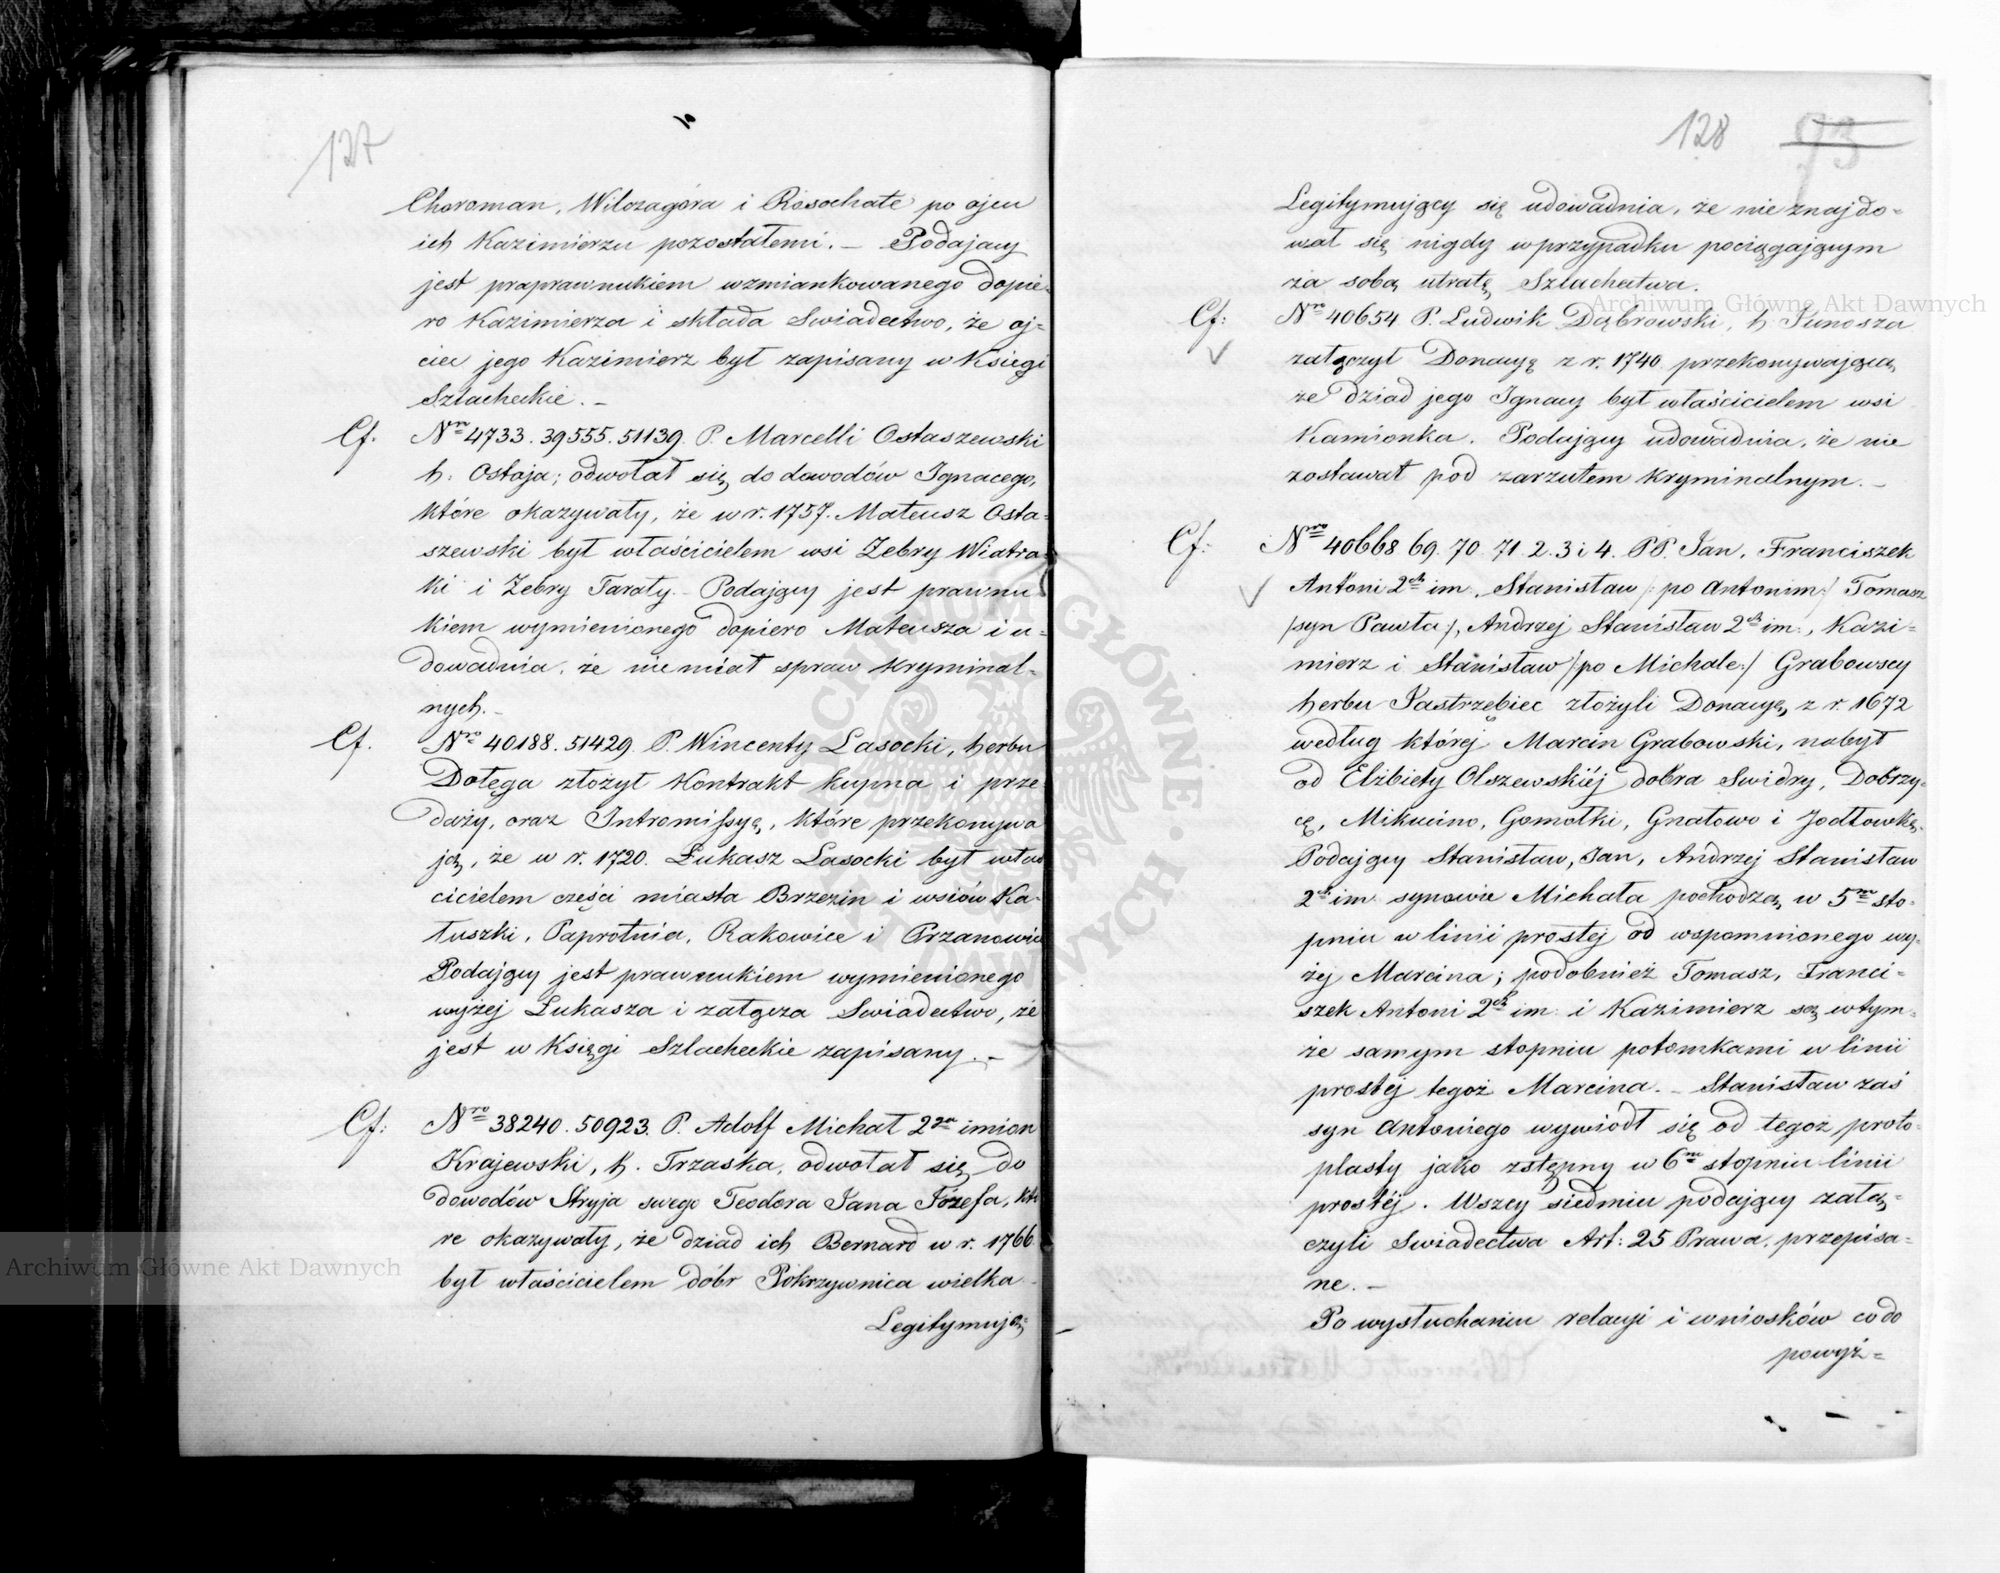 127
Choroman, Wilczagóra i Rosochate po ojcu
ich Kazimierzu pozostałemi. — Podający
jest praprawnukiem wzmiankowanego dopie-
ro Kazimierza i składa Swiadectwo, że oj=
ciec jego Kazimierz był zapisany w Księgi
Szlacheckie. —
Cf. Nro 4733. 39555. 51139. P. Marcelli Ostaszewski
h: Ostoja; odwołał się do dowodów Ignacego,
które okazywały, że w r. 1757. Mateusz Osta=
szewski był właścicielem wsi Zebry Wiatra=
ki i Zebry Taraty. Podający jest prawnu
kiem wymienionego dopiero Mateusza i u=
dowadnia, że nie miał spraw kryminal=
nych. —
Cf. Nro 40188. 51429. P. Wincenty Lasocki, herbu
Dołęga złożył Kontrakt kupna i prze
daży, oraz Intromissyę, które przekonywa
ją, że w r. 1720. Łukasz Lasocki był właś
cicielem części miasta Brzezin i wsiów Ka-
łuszki, Paprotnia, Rakowice i Przanowice
Podający jest prawnukiem wymienionego
wyżej Łukasza i załącza Swiadectwo, że
jest w Księgi Szlacheckie zapisany. —
Cf: Nro 38240. 50923. P. Adolf Michał 2ga imion
Krajewski, h. Trzaska, odwołał się do
dowodów Stryja swego Teodora Jana Józefa, któ
re okazywały, że dziad ich Bernard w r. 1766
był właścicielem dóbr Pokrzywnica wielka
Legitymują=
128 93
Legitymujący się udowadnia, że nie znajdo=
wał się nigdy w przypadku pociągającym
za sobą utratę Szlachectwa.
Cf: Nro 40654 P. Ludwik Dąbrowski, h. Junosza
załączył Donacyę z r. 1740 przekonywającą,
że dziad jego Ignacy był właścicielem wsi
Kamionka. Podający udowadnia, że nie
zostawał pod zarzutem kryminalnym. —
Cf: Nro 40668 69. 70. 71. 2. 3 i 4. PP. Jan, Franciszek
Antoni 2ch im., Stanisław /: po Antonim :/ Tomasz
/syn Pawła :/, Andrzej Stanisław 2ch im:, Kazi=
mierz i Stanisław /po Michale :/ Grabowscy
herbu Jastrzębiec złożyli Donacyę z r. 1672
według któréj Marcin Grabowski, nabył
od Elżbiety Olszewskiéj dobra Swidry, Dobrzy-
cę, Mikucino, Gomołki, Gnatowo i Jodłowkę.
Podający Stanisław, Jan, Andrzej Stanisław
2ch im. synowie Michała pochodzą w 5m sto-
pniu w linii prostej od wspomnionego wy-
żej Marcina; podobnież Tomasz, Franci=
szek Antoni 2ch im. i Kazimierz są w tym=
że samym stopniu potomkami w linii
prostéj tegoż Marcina. — Stanisław zaś
syn Antoniego wywiódł się od tegoż proto-
plasty jako zstępny w 6m stopniu linii
prostéj. Wszcy siedmiu podający załą=
czyli Swiadectwa Art: 25 Prawa, przepisa=
ne. —
Po wysłuchaniu relacyi i wniosków co do
powyż=
Archiwum Główne Akt Dawnych
Archiwum Główne Akt Dawnych
ARCHIWUM GŁÓWNE AKT DAWNYCH